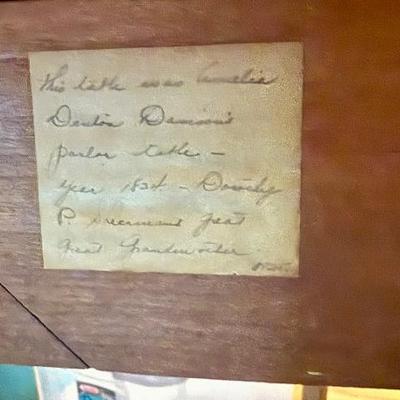 This table was Amelia
Denton Davison's
parlor table –
year 1834 – Dorothy
P. great
Great Grandmother